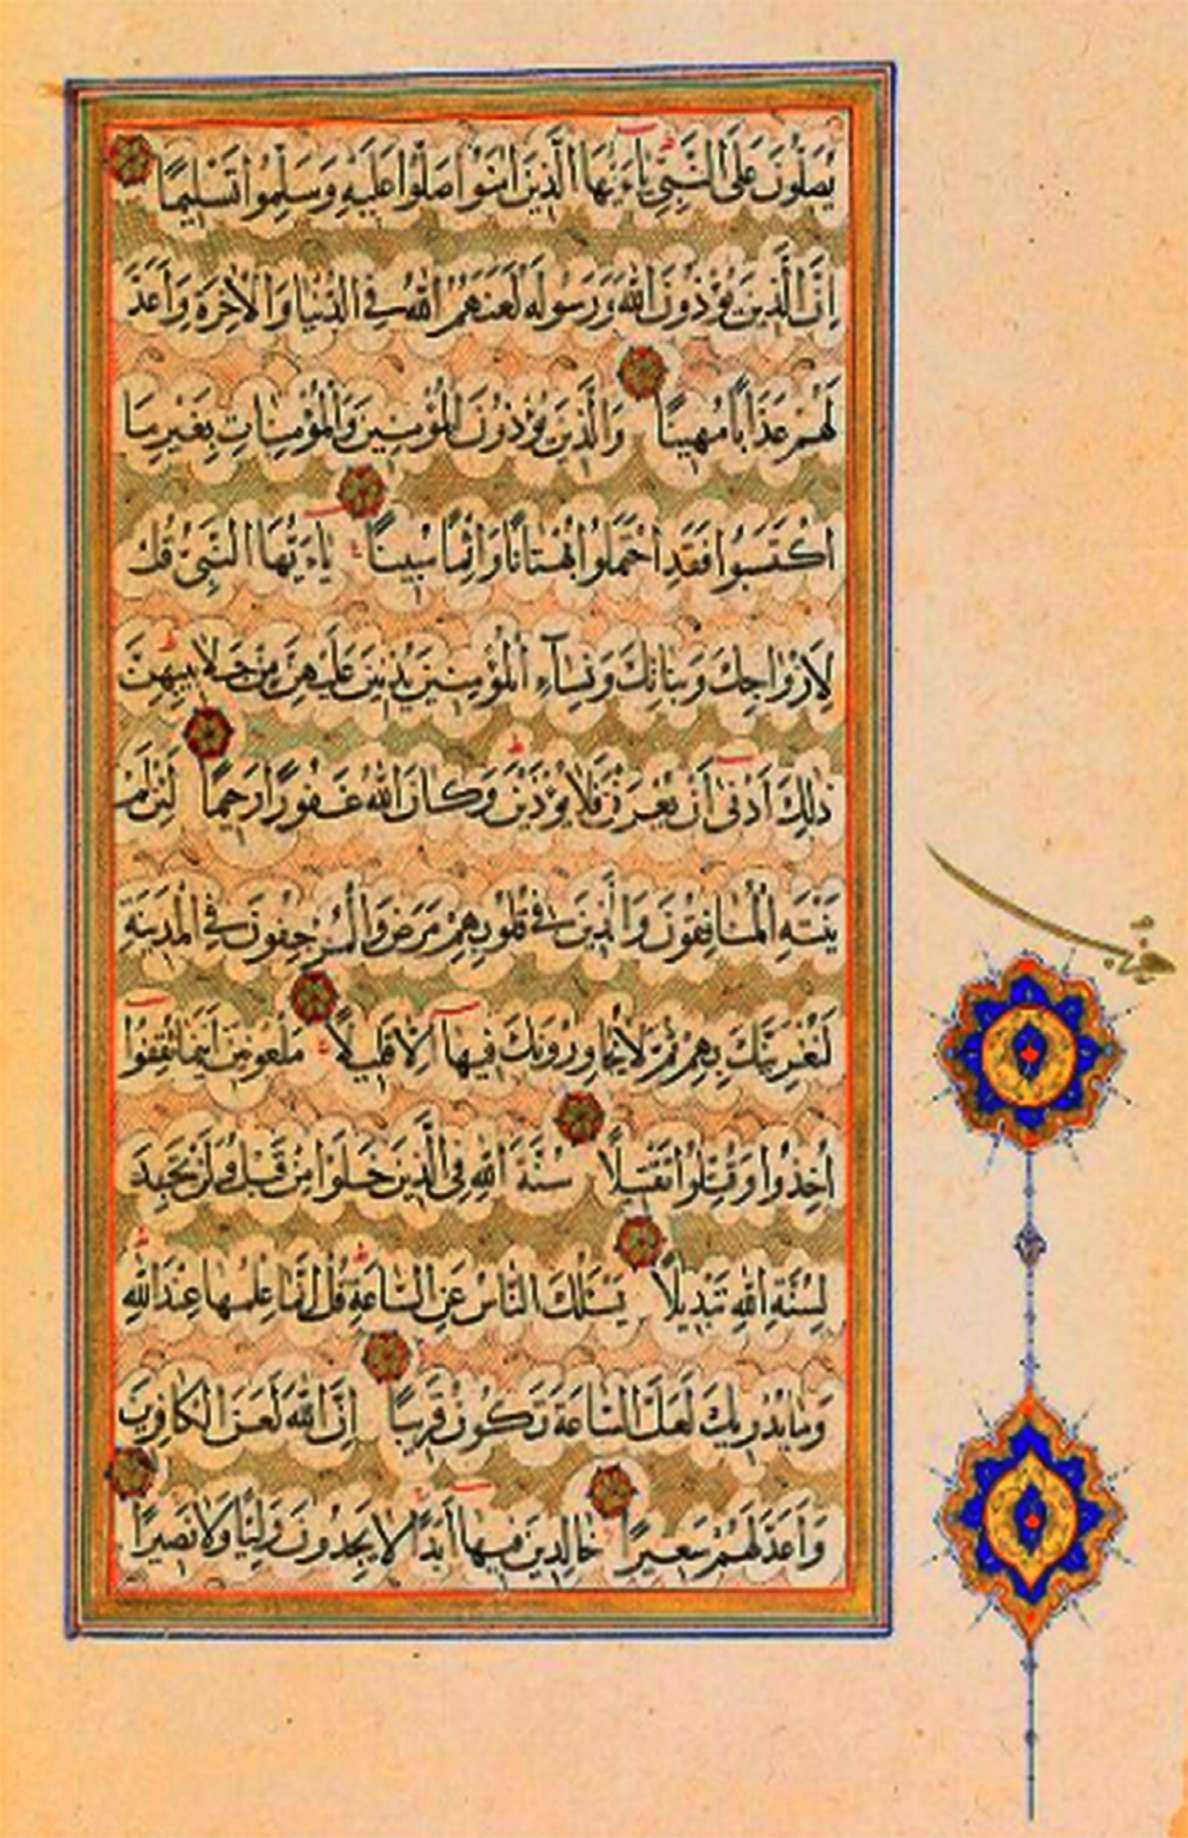 يُصَلُّونَ عَلَى النَّبِيِّ يَاءَيُّهَا الَّذِينَ اٰمَنُوا صَلُّوا عَلَيْهِ وَسَلِّمُوا تَسْلِيمًا
اِنَّ الَّذِينَ يُؤْذُونَ اللهَ وَرَسُولَهُ لَعَنَهُمُ اللهُ فِي الدُّنْيَا وَالْاٰخِرَةِ وَاَعَدَّ
لَهُمْ عَذَابًا مُهِينًا وَالَّذِينَ يُؤْذُونَ الْمُؤْمِنِينَ وَالْمُؤْمِنَاتِ بِغَيْرِ مَا
اكْتَسَبُوا فَقَدِ احْتَمَلُوا بُهْتَانًا وَاِثْمًا مُبِينًا يَاءَيُّهَا النَّبِيُّ قُلْ
لِاَزْوَاجِكَ وَبَنَاتِكَ وَنِسَآءِ الْمُؤْمِنِينَ يُدْنِينَ عَلَيْهِنَّ مِنْ جَلَابِيبِهِنَّ
ذٰلِكَ اَدْنٰى اَنْ يُعْرَفْنَ فَلَا يُؤْذَيْنَ وَكَانَ اللهُ غَفُورًا رَحِيمًا لَئِنْ لَمْ
يَنْتَهِ الْمُنَافِقُونَ وَالَّذِينَ فِي قُلُوبِهِمْ مَرَضٌ وَالْمُرْجِفُونَ فِي الْمَدِينَةِ
لَنُغْرِيَنَّكَ بِهِمْ ثُمَّ لَا يُجَاوِرُونَكَ فِيهَا اِلَّا قَلِيلًا مَلْعُونِينَ اَيْنَمَا ثُقِفُوا
اُخِذُوا وَقُتِّلُوا تَقْتِيلًا سُنَّةَ اللهِ فِي الَّذِينَ خَلَوْا مِنْ قَبْلُ وَلَنْ تَجِدَ
لِسُنَّةِ اللهِ تَبْدِيلًا يَسْئَلُكَ النَّاسُ عَنِ السَّاعَةِ قُلْ اِنَّمَا عِلْمُهَا عِنْدَ اللهِ
وَمَا يُدْرِيكَ لَعَلَّ السَّاعَةَ تَكُونُ قَرِيبًا اِنَّ اللهَ لَعَنَ الْكَافِرِينَ
وَاَعَدَّ لَهُمْ سَعِيرًا خَالِدِينَ فِيهَا اَبَدًا لَا يَجِدُونَ وَلِيًّا وَلَا نَصِيرًا